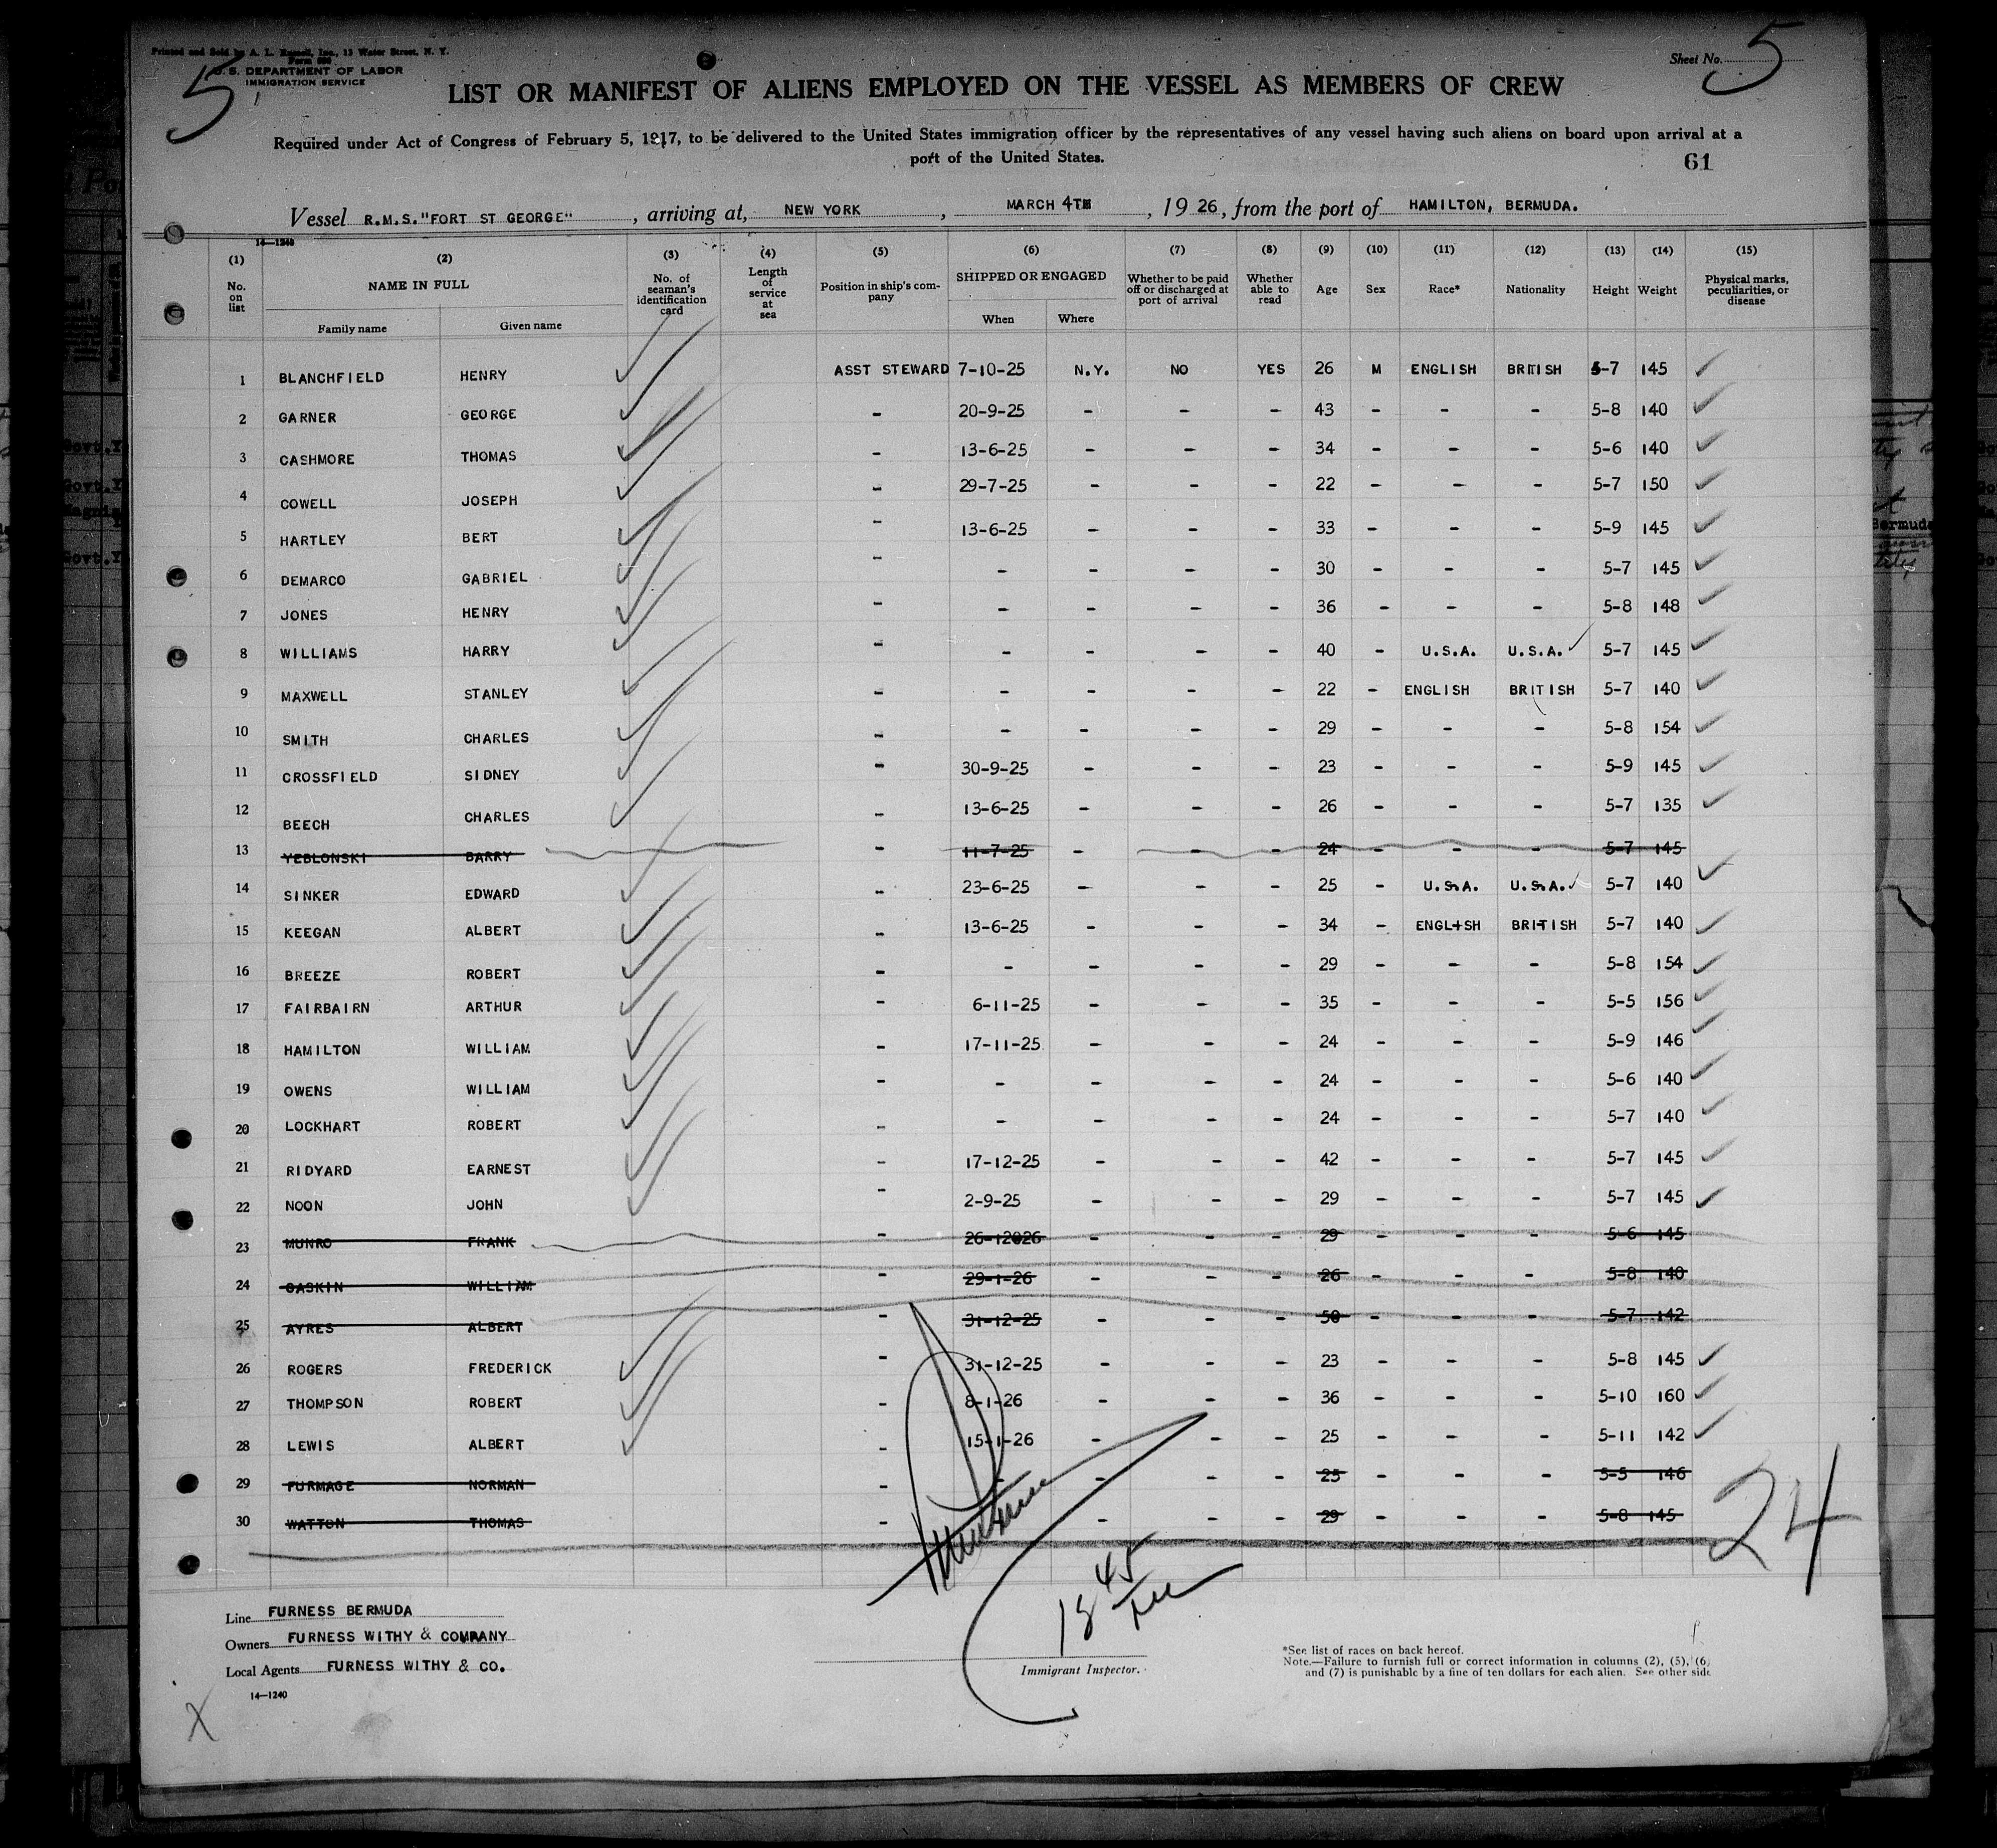 Printed and Sold by A. L. Russell, Inc., 13 Water Street, N. Y.
Form 680
U. S. DEPARTMENT OF LABOR
IMMIGRATION SERVICE
5
Sheet No. 5
LIST OR MANIFEST OF ALIENS EMPLOYED ON THE VESSEL AS MEMBERS OF CREW
Required under Act of Congress of February 5, 1917, to be delivered to the United States immigration officer by the representatives of any vessel having such aliens on board upon arrival at a
port of the United States.
61
Vessel R.M.S."FORT ST GEORGE", arriving at, NEW YORK, MARCH 4TH, 1926, from the port of HAMILTON, BERMUDA.
14—1240
(1) (2) (3) (4) (5) (6) (7) (8) (9) (10) (11) (12) (13) (14) (15)
No. on list NAME IN FULL No. of seaman's identification card Length of service at sea Position in ship's company SHIPPED OR ENGAGED Whether to be paid off or discharged at port of arrival Whether able to read Age Sex Race* Nationality Height Weight Physical marks, peculiarities, or disease
Family name Given name When Where
1 BLANCHFIELD HENRY ASST STEWARD 7-10-25 N.Y. NO YES 26 M ENGLISH BRITISH 5-7 145
2 GARNER GEORGE - 20-9-25 - - - 43 - - - 5-8 140
3 CASHMORE THOMAS - 13-6-25 - - - 34 - - - 5-6 140
4 COWELL JOSEPH - 29-7-25 - - - 22 - - - 5-7 150
5 HARTLEY BERT - 13-6-25 - - - 33 - - - 5-9 145
6 DEMARCO GABRIEL - - - - - 30 - - - 5-7 145
7 JONES HENRY - - - - - 36 - - - 5-8 148
8 WILLIAMS HARRY - - - - - 40 - U.S.A. U.S.A. 5-7 145
9 MAXWELL STANLEY - - - - - 22 - ENGLISH BRITISH 5-7 140
10 SMITH CHARLES - - - - - 29 - - - 5-8 154
11 CROSSFIELD SIDNEY - 30-9-25 - - - 23 - - - 5-9 145
12 BEECH CHARLES - 13-6-25 - - - 26 - - - 5-7 135
13 YEBLONSKI BARRY - 11-7-25 - - - 24 - - - 5-7 145
14 SINKER EDWARD - 23-6-25 - - - 25 - U.S.A. U.S.A. 5-7 140
15 KEEGAN ALBERT - 13-6-25 - - - 34 - ENGLISH BRITISH 5-7 140
16 BREEZE ROBERT - - - - - 29 - - - 5-8 154
17 FAIRBAIRN ARTHUR - 6-11-25 - - - 35 - - - 5-5 156
18 HAMILTON WILLIAM - 17-11-25 - - - 24 - - - 5-9 146
19 OWENS WILLIAM - - - - - 24 - - - 5-6 140
20 LOCKHART ROBERT - - - - - 24 - - - 5-7 140
21 RIDYARD EARNEST - 17-12-25 - - - 42 - - - 5-7 145
22 NOON JOHN - 2-9-25 - - - 29 - - - 5-7 145
23 MUNRO FRANK - - - - 29 - - - 5-6 145
24 GASKIN WILLIAM - 29-1-26 - - - 26 - - - 5-8 140
25 AYRES ALBERT - 31-12-25 - - - 50 - - - 5-7 142
26 ROGERS FREDERICK - 31-12-25 - - - 23 - - - 5-8 145
27 THOMPSON ROBERT - 8-1-26 - - - 36 - - - 5-10 160
28 LEWIS ALBERT - 15-1-26 - - - 25 - - - 5-11 142
29 FURMAGE NORMAN - - - - - 25 - - - 5-5 146
30 WATTON THOMAS - - - - 29 - - - 5-8 145
24
18 45
Line FURNESS BERMUDA
Owners FURNESS WITHY & COMPANY
Local Agents FURNESS WITHY & CO.
14—1240
X
Immigrant Inspector.
*See list of races on back hereof.
Note.—Failure to furnish full or correct information in columns (2), (5), (6)
and (7) is punishable by a fine of ten dollars for each alien. See other side